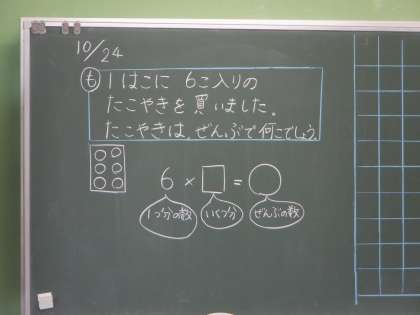 10/24
も 1はこに 6こ入りの
たこやきを買いました。
たこやきは、ぜんぶで何こでしょう。
6 × □ = ○
1つ分の数 いくつ分 ぜんぶの数